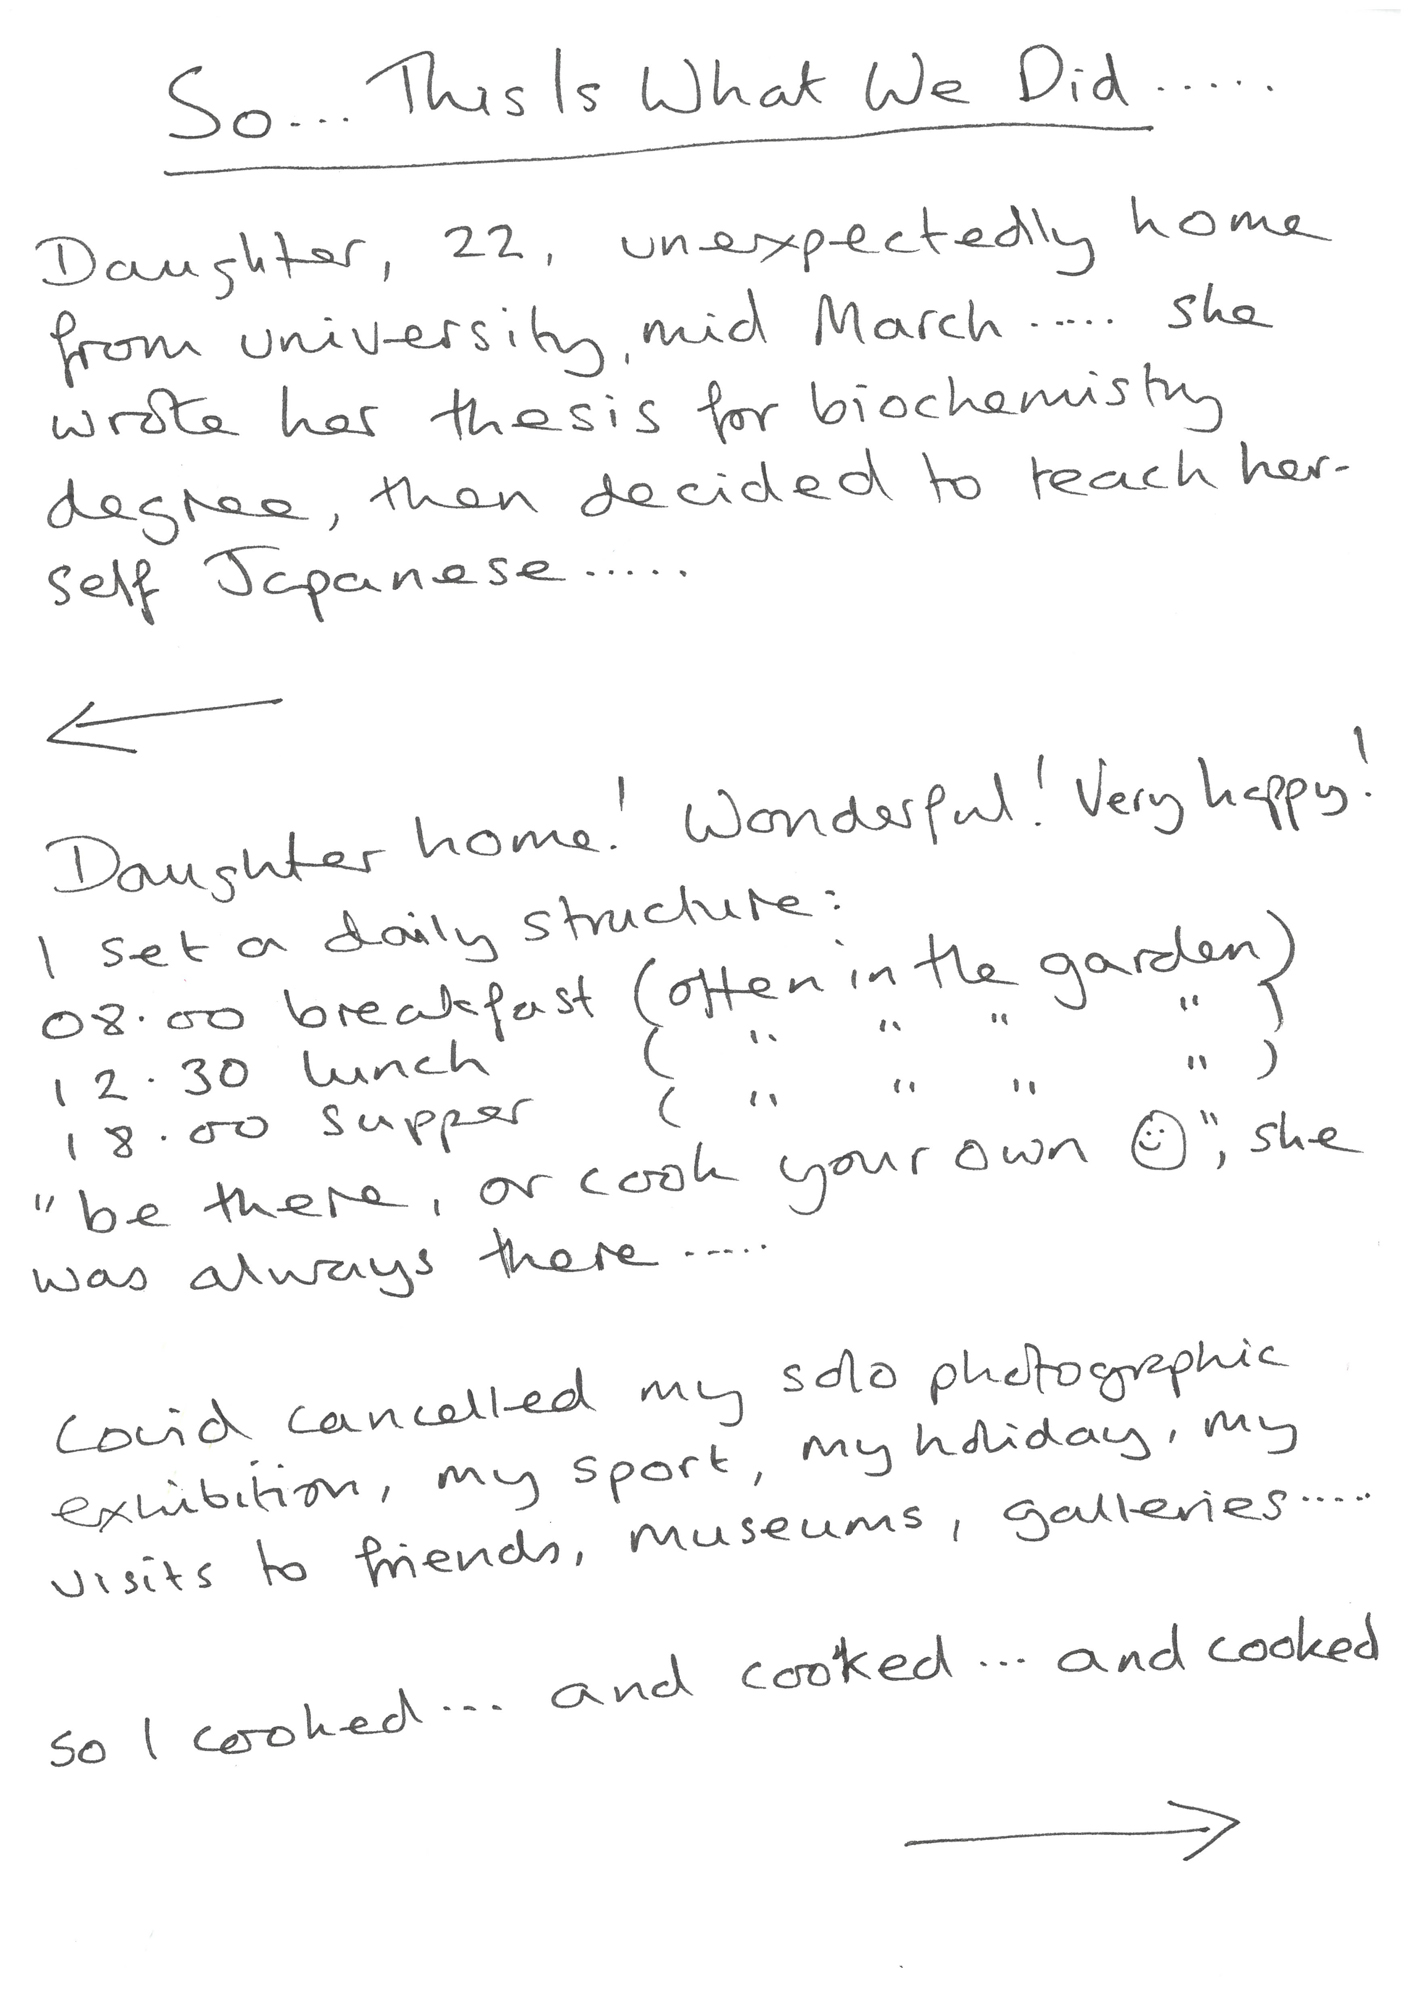 So... This Is What We Did.....
Daughter, 22, unexpectedly home
from university, mid March..... she
wrote her thesis for biochemistry
degree, then decided to teach her-
self Japanese.....
Daughter home! Wonderful! Very happy!
I set a daily structure:
08.00 breakfast (often in the garden)
12.30 lunch ( " " " " )
18.00 supper ( " " " " )
"be there, or cook your own ☺", she
was always there.....
Covid cancelled my solo photographic
exhibition, my sport, my holiday, my
visits to friends, museums, galleries.....
so I cooked... and cooked... and cooked